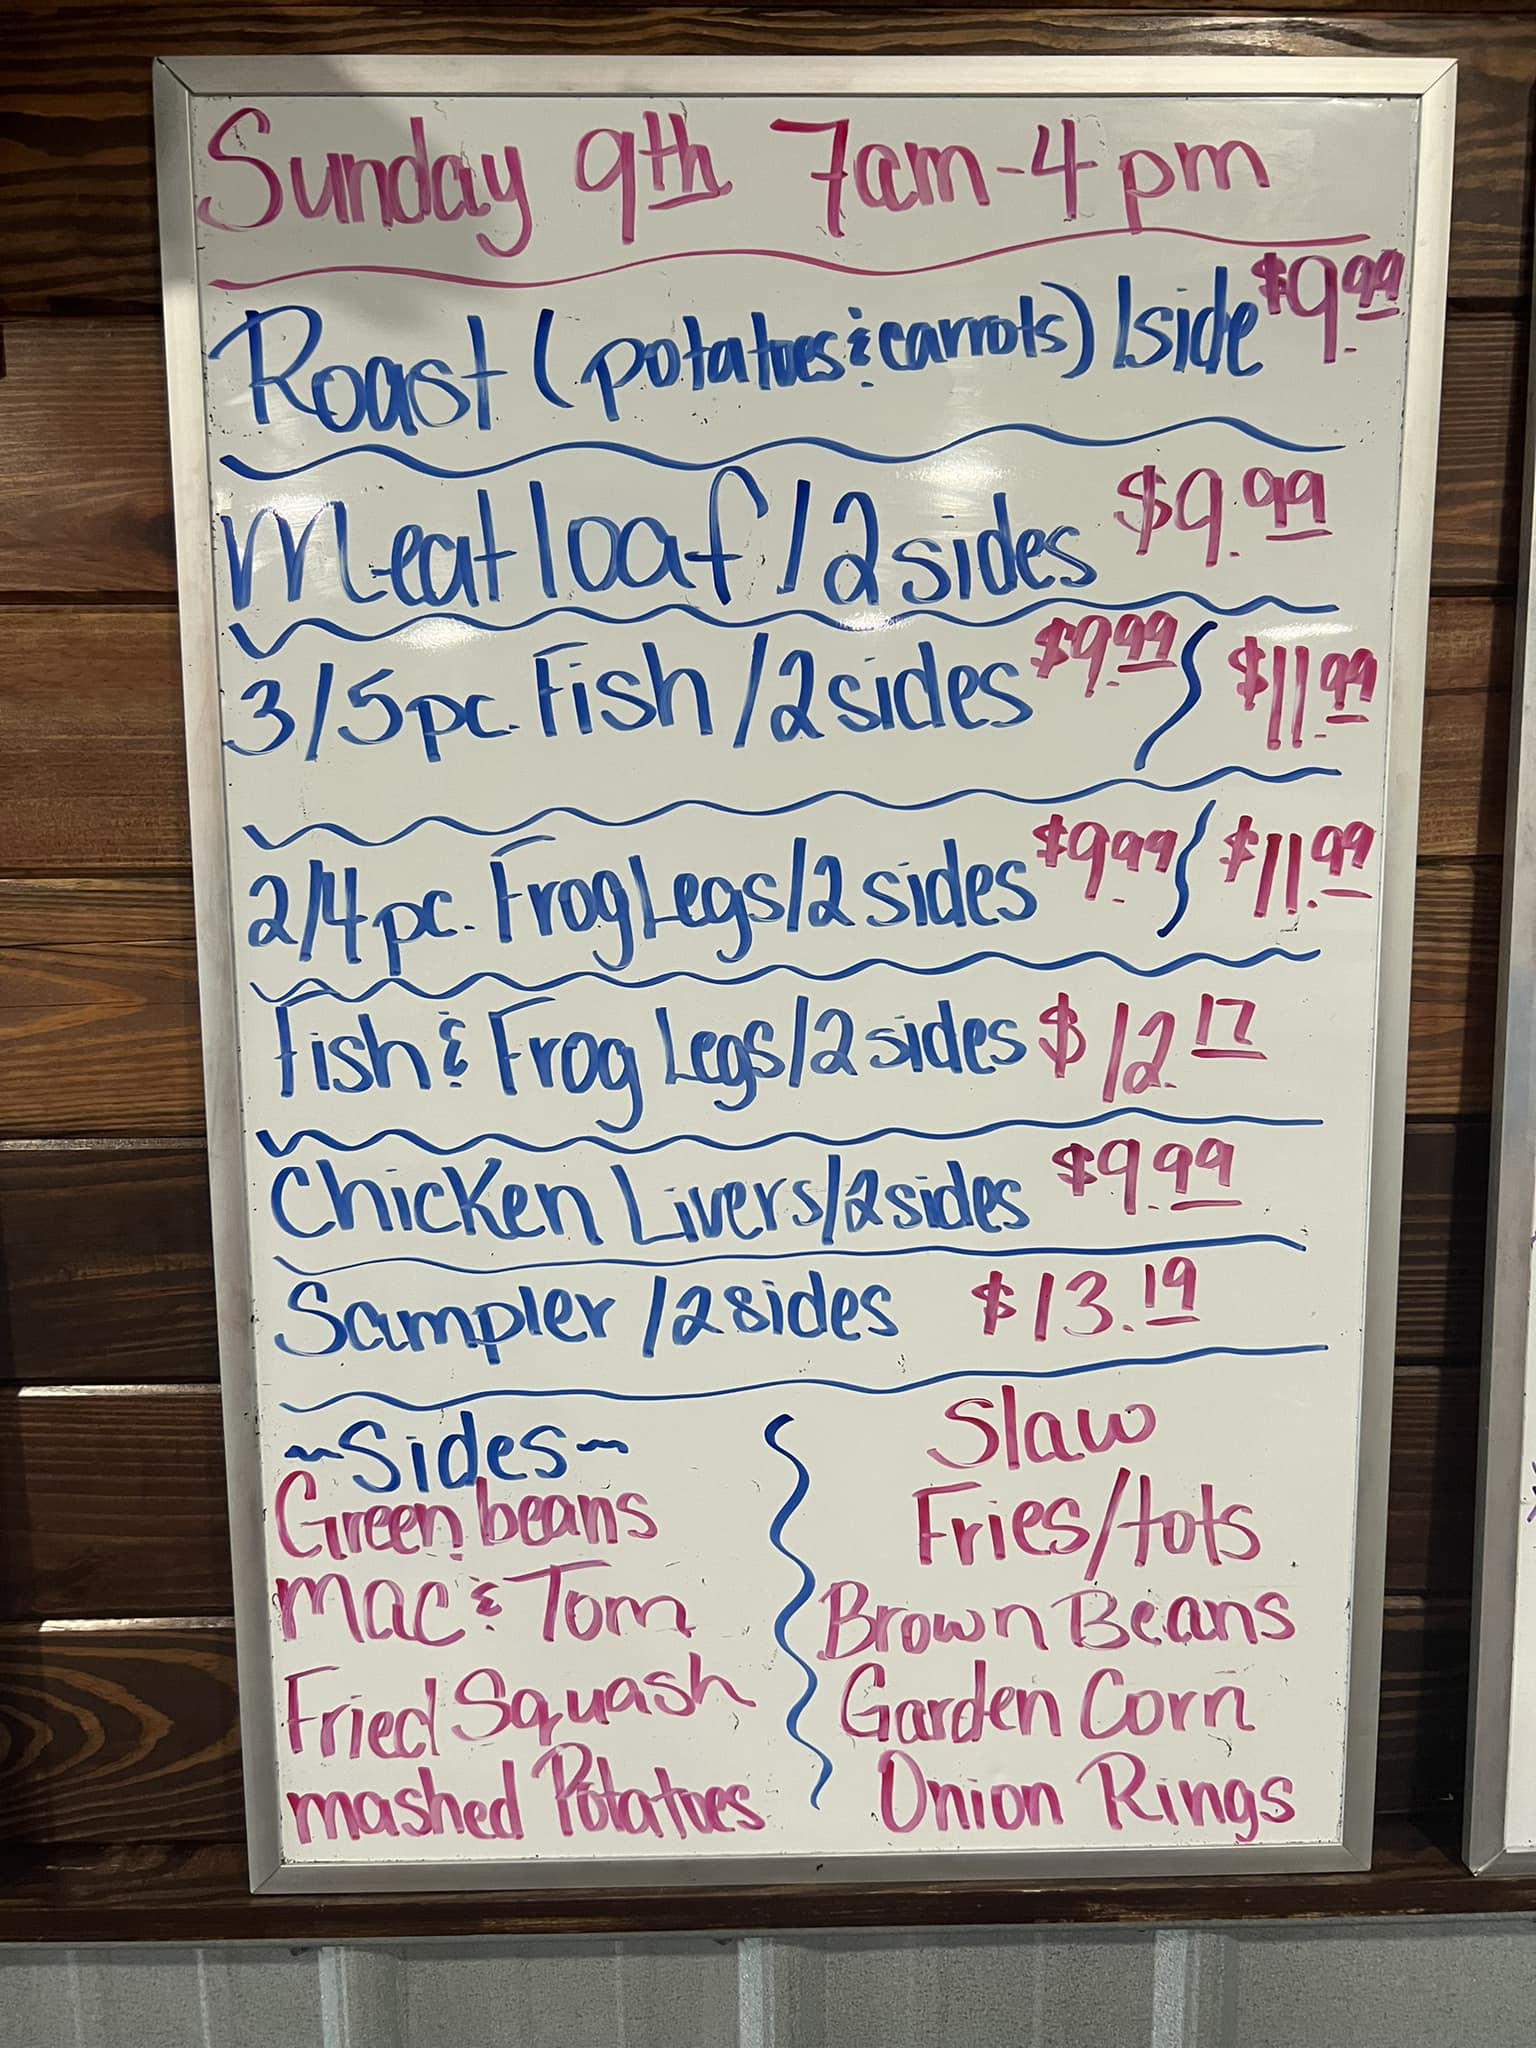 Sunday 9th 7am-4pm
Roast (potatoes & carrots) 1side $9.99
Meatloaf/2sides $9.99
3/5pc. Fish/2sides $9.99 / $11.99
2/4pc. Frog Legs/2sides $9.99 / $11.99
Fish & Frog Legs/2sides $12.17
Chicken Livers/2sides $9.99
Sampler/2sides $13.19
~Sides~
Green beans
Mac & Tom
Fried Squash
mashed Potatoes
Slaw
Fries/tots
Brown Beans
Garden Corn
Onion Rings